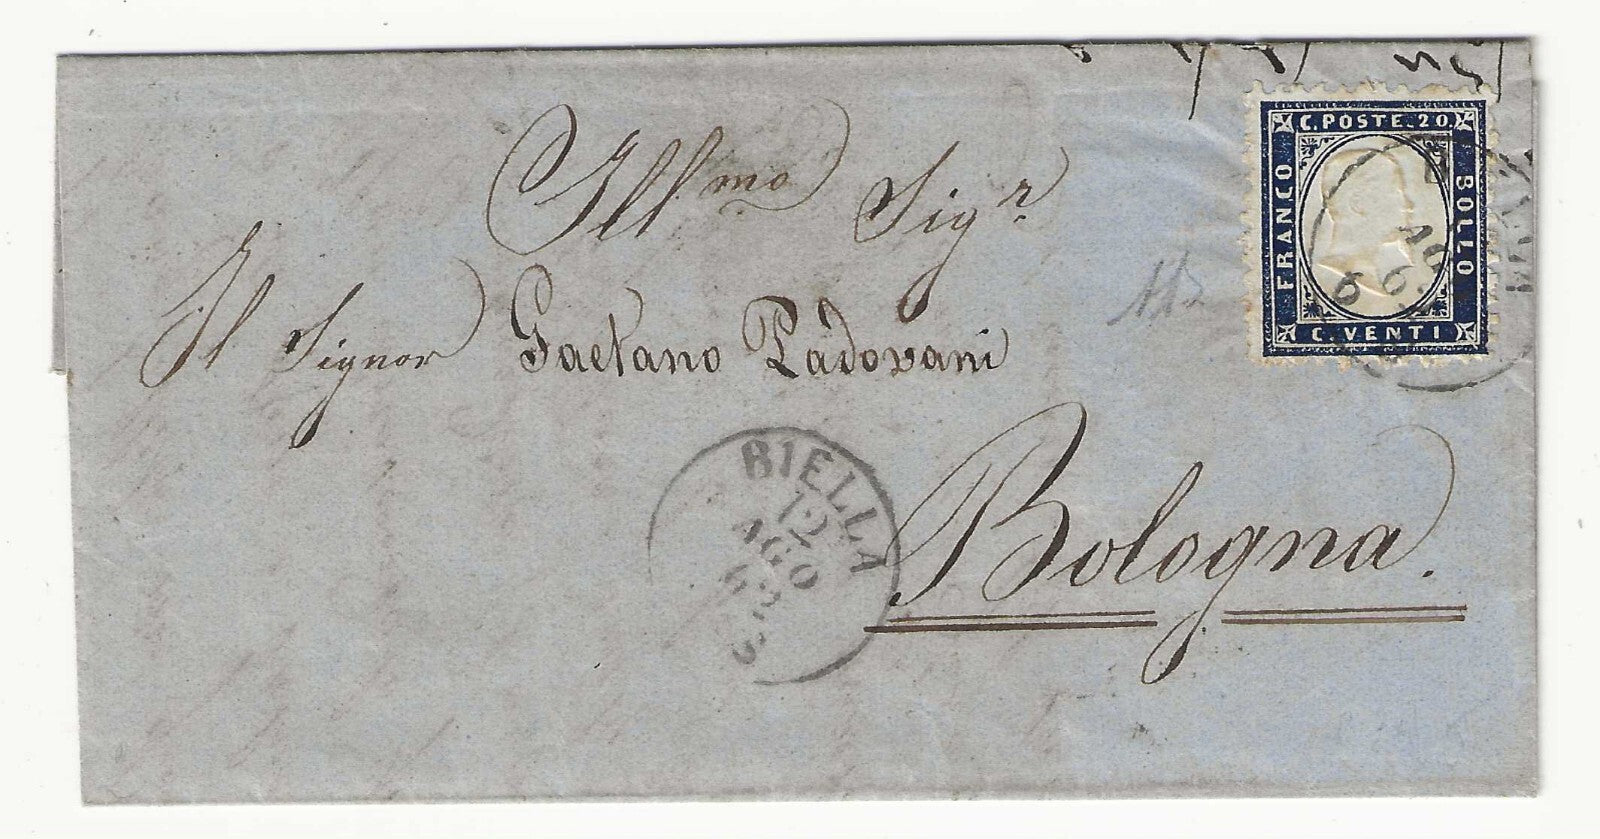 C. POSTE. 20.
FRANCO
BOLLO
C. VENTI
Ill.mo Sig.r
Il Signor Gaetano Padovani
Bologna.
BIELLA
12
AGO
63